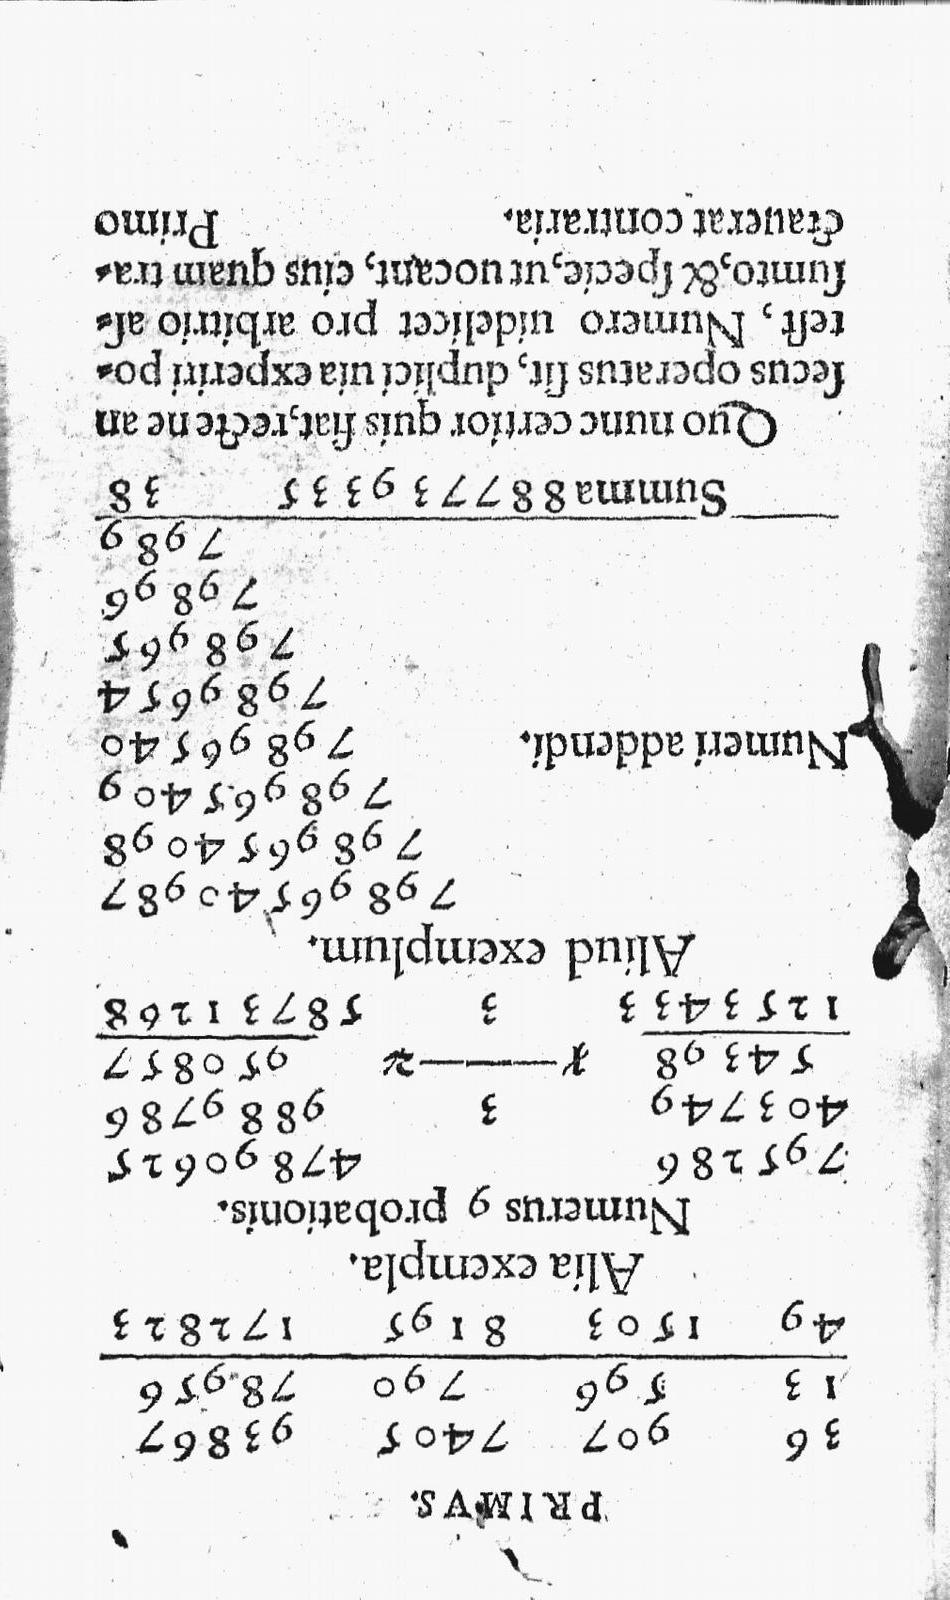 PRIMVS.
36 907 7405 93867
13 596 790 78956
49 1503 8195 172823
Alia exempla.
Numerus 9 probationis.
795286 47890625
403749 3 9889786
54398 ——— 950857
1253433 3 58731268
Aliud exemplum.
79896540987
7989654098
798965409
Numeri addendi. 79896540
7989654
798965
79896
7989
Summa 887739335 38
Quo nunc certior quis fiat, recte ne an
ſecus operatus ſit, duplici uia experiri po-
teſt, Numero uidelicet pro arbitrio aſ-
ſumto, & ſpecie, ut uocant, eius quam tra-
ctauerat contraria. Primo